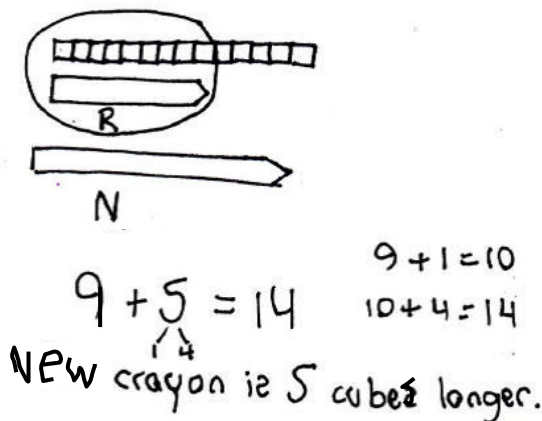 R
N
9 + 5 = 14
1 4
9 + 1 = 10
10 + 4 = 14
New crayon is 5 cubes longer.